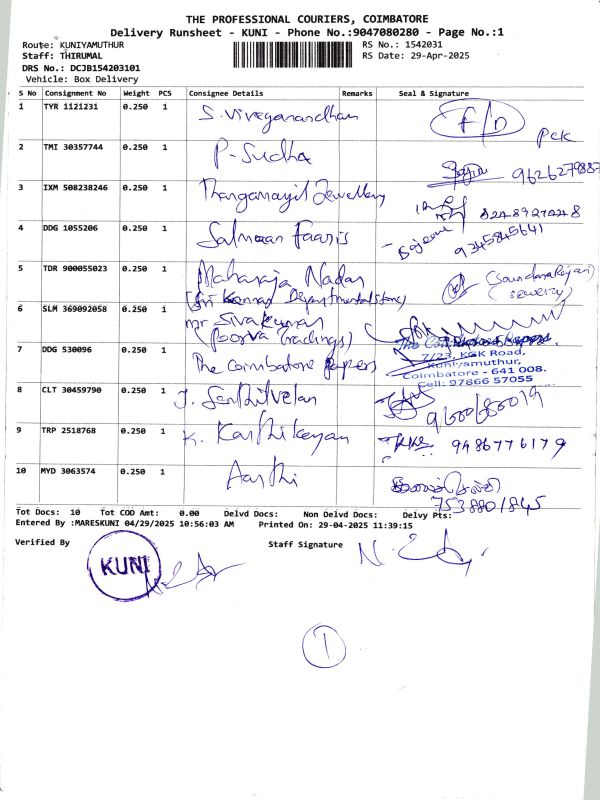 THE PROFESSIONAL COURIERS, COIMBATORE
Delivery Runsheet - KUNI - Phone No.:9047080280 - Page No.:1
Route: KUNIYAMUTHUR RS No.: 1542031
Staff: THIRUMAL RS Date: 29-Apr-2025
DRS No.: DCJB154203101
Vehicle: Box Delivery
S No Consignment No Weight PCS Consignee Details Remarks Seal & Signature
1 TYR 1121231 0.250 1 S. Viveganandhan F/D
Pck
2 TMI 30357744 0.250 1 P. Sudha
9626279887
3 IXM 508238246 0.250 1 Thangamayil Jewellery
8248927248
4 DDG 1055206 0.250 1 Salmaan Faaris
9345845641
5 TDR 900055023 0.250 1 Maharaja Nadar
(Sri Kannan Departmental store)
6 SLM 369092058 0.250 1 mr Sivakumar
(Poorva Tradings)
7 DDG 530096 0.250 1 The Coimbatore Papers
The Coimbatore Papers
7/23, KGK Road,
Kuniyamuthur,
Coimbatore - 641 008.
Cell: 97866 57055
8 CLT 30459790 0.250 1 J. Senthilvelan
9600180019
9 TRP 2518768 0.250 1 K. Karthikeyan 9486776179
10 MYD 3063574 0.250 1 Aarthi
7538801845
Tot Docs: 10 Tot COD Amt: 0.00 Delvd Docs: Non Delvd Docs: Delvy Pts:
Entered By :MARESKUNI 04/29/2025 10:56:03 AM Printed On: 29-04-2025 11:39:15
Verified By Staff Signature
KUNI
1